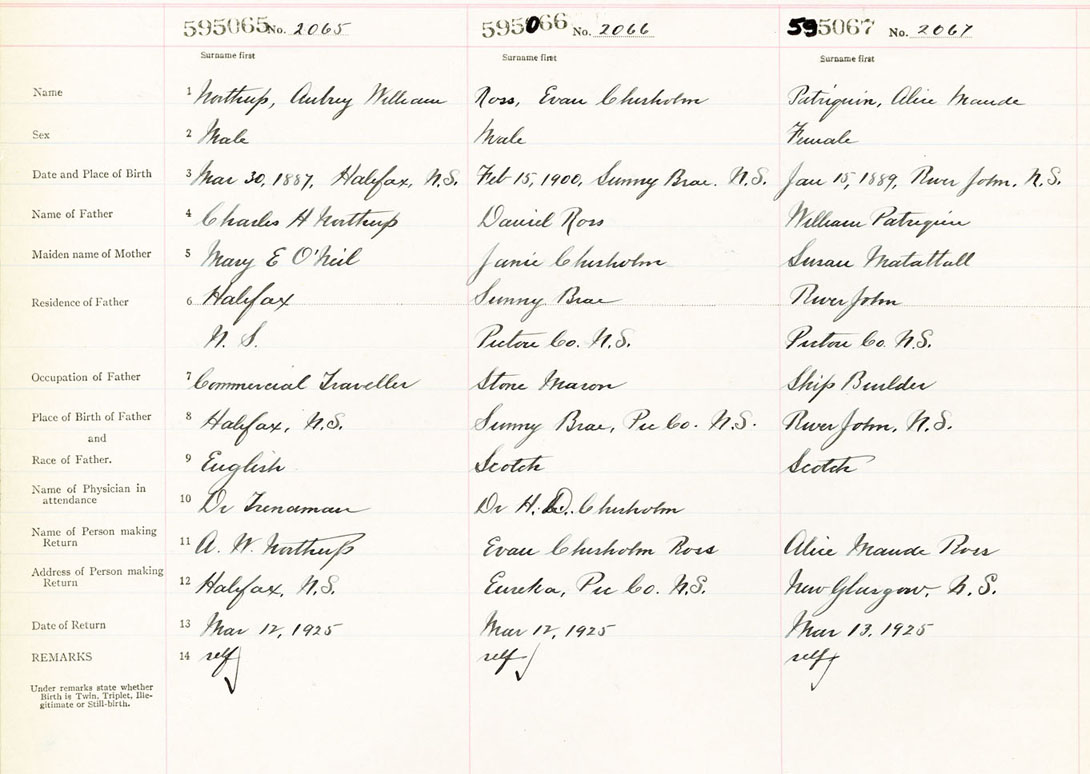 595065 No. 2065 595066 No. 2066 595067 No. 2067
Surname first Surname first Surname first
Name 1 Northup, Aubrey William Ross, Evan Chisholm Patriquin, Alice Maude
Sex 2 Male Male Female
Date and Place of Birth 3 Mar 30, 1887, Halifax, N.S. Feb 15, 1900, Sunny Brae. N.S. Jan 15, 1889, River John, N.S.
Name of Father 4 Charles H Northup Daniel Ross William Patriquin
Maiden name of Mother 5 Mary E O'Neil Janie Chisholm Susan Matattall
Residence of Father 6 Halifax Sunny Brae River John
N. S. Pictou Co. N.S. Pictou Co. N.S.
Occupation of Father 7 Commercial Traveller Stone Mason Ship Builder
Place of Birth of Father 8 Halifax, N.S. Sunny Brae, Pic Co. N.S. River John, N.S.
and
Race of Father. 9 English Scotch Scotch
Name of Physician in
attendance 10 Dr Trenaman Dr H. D. Chisholm
Name of Person making
Return 11 A. W. Northup Evan Chisholm Ross Alice Maude Ross
Address of Person making
Return 12 Halifax, N.S. Eureka, Pic Co. N.S. New Glasgow, N.S.
Date of Return 13 Mar 12, 1925 Mar 12, 1925 Mar 13, 1925
REMARKS 14 self self self
Under remarks state whether
Birth is Twin, Triplet, Ille-
gitimate or Still-birth.